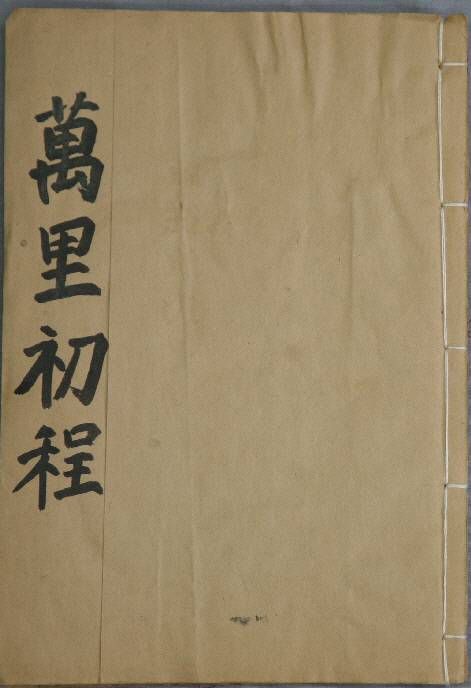 萬里初程